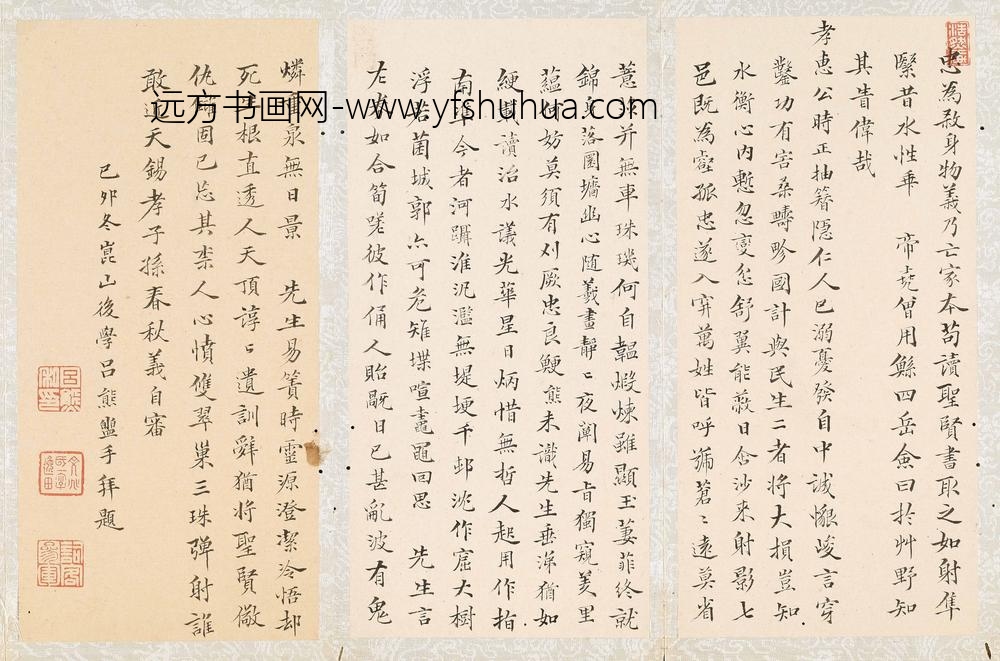 忠為殺身物義乃亡家本苟讀聖賢書取之如射隼
緊昔水性乖 帝堯曾用鯀四岳僉曰於艸野知
其眚偉哉
孝惠公時正抽簪隱仁人已溺憂發自中誠懇峻言穿
鑿功有害桑疇畛國計與民生二者將大損豈知
水衡心內慙忽變怎舒翼能蔽日含沙來射影七
邑既為壑孤忠遂入穽萬姓皆呼號蒼〻遠莫省
薏苡并無車珠璣何自韞煅煉雖顯玉萋菲終就
錦 落圜墻幽心隨羲畫靜〻夜闌易旨獨窺羑里
蘊何妨莫須有刈厥忠良鯁熊未識先生垂涕猶如
綆 讀治水議光華星日炳惜無哲人起用作指
南 今者河躪淮汜濫無堤埂千邨洮作窟大樹
浮若菌城郭亦可危雉堞喧鼃黽回思 先生言
左 如合筍嗟彼作俑人貽毆日已甚亂波有鬼
燐 泉無日景 先生易簀時靈源澄潔泠悟却
死 根直透人天頂諄〻遺訓辭猶將聖賢儆
仇 固已忘其柰人心憤雙翠巢三珠彈射誰
敢 天錫孝子孫春秋義自審
己卯冬崑山後學呂熊盥手拜題
远方书画网-www.yfshuhua.com